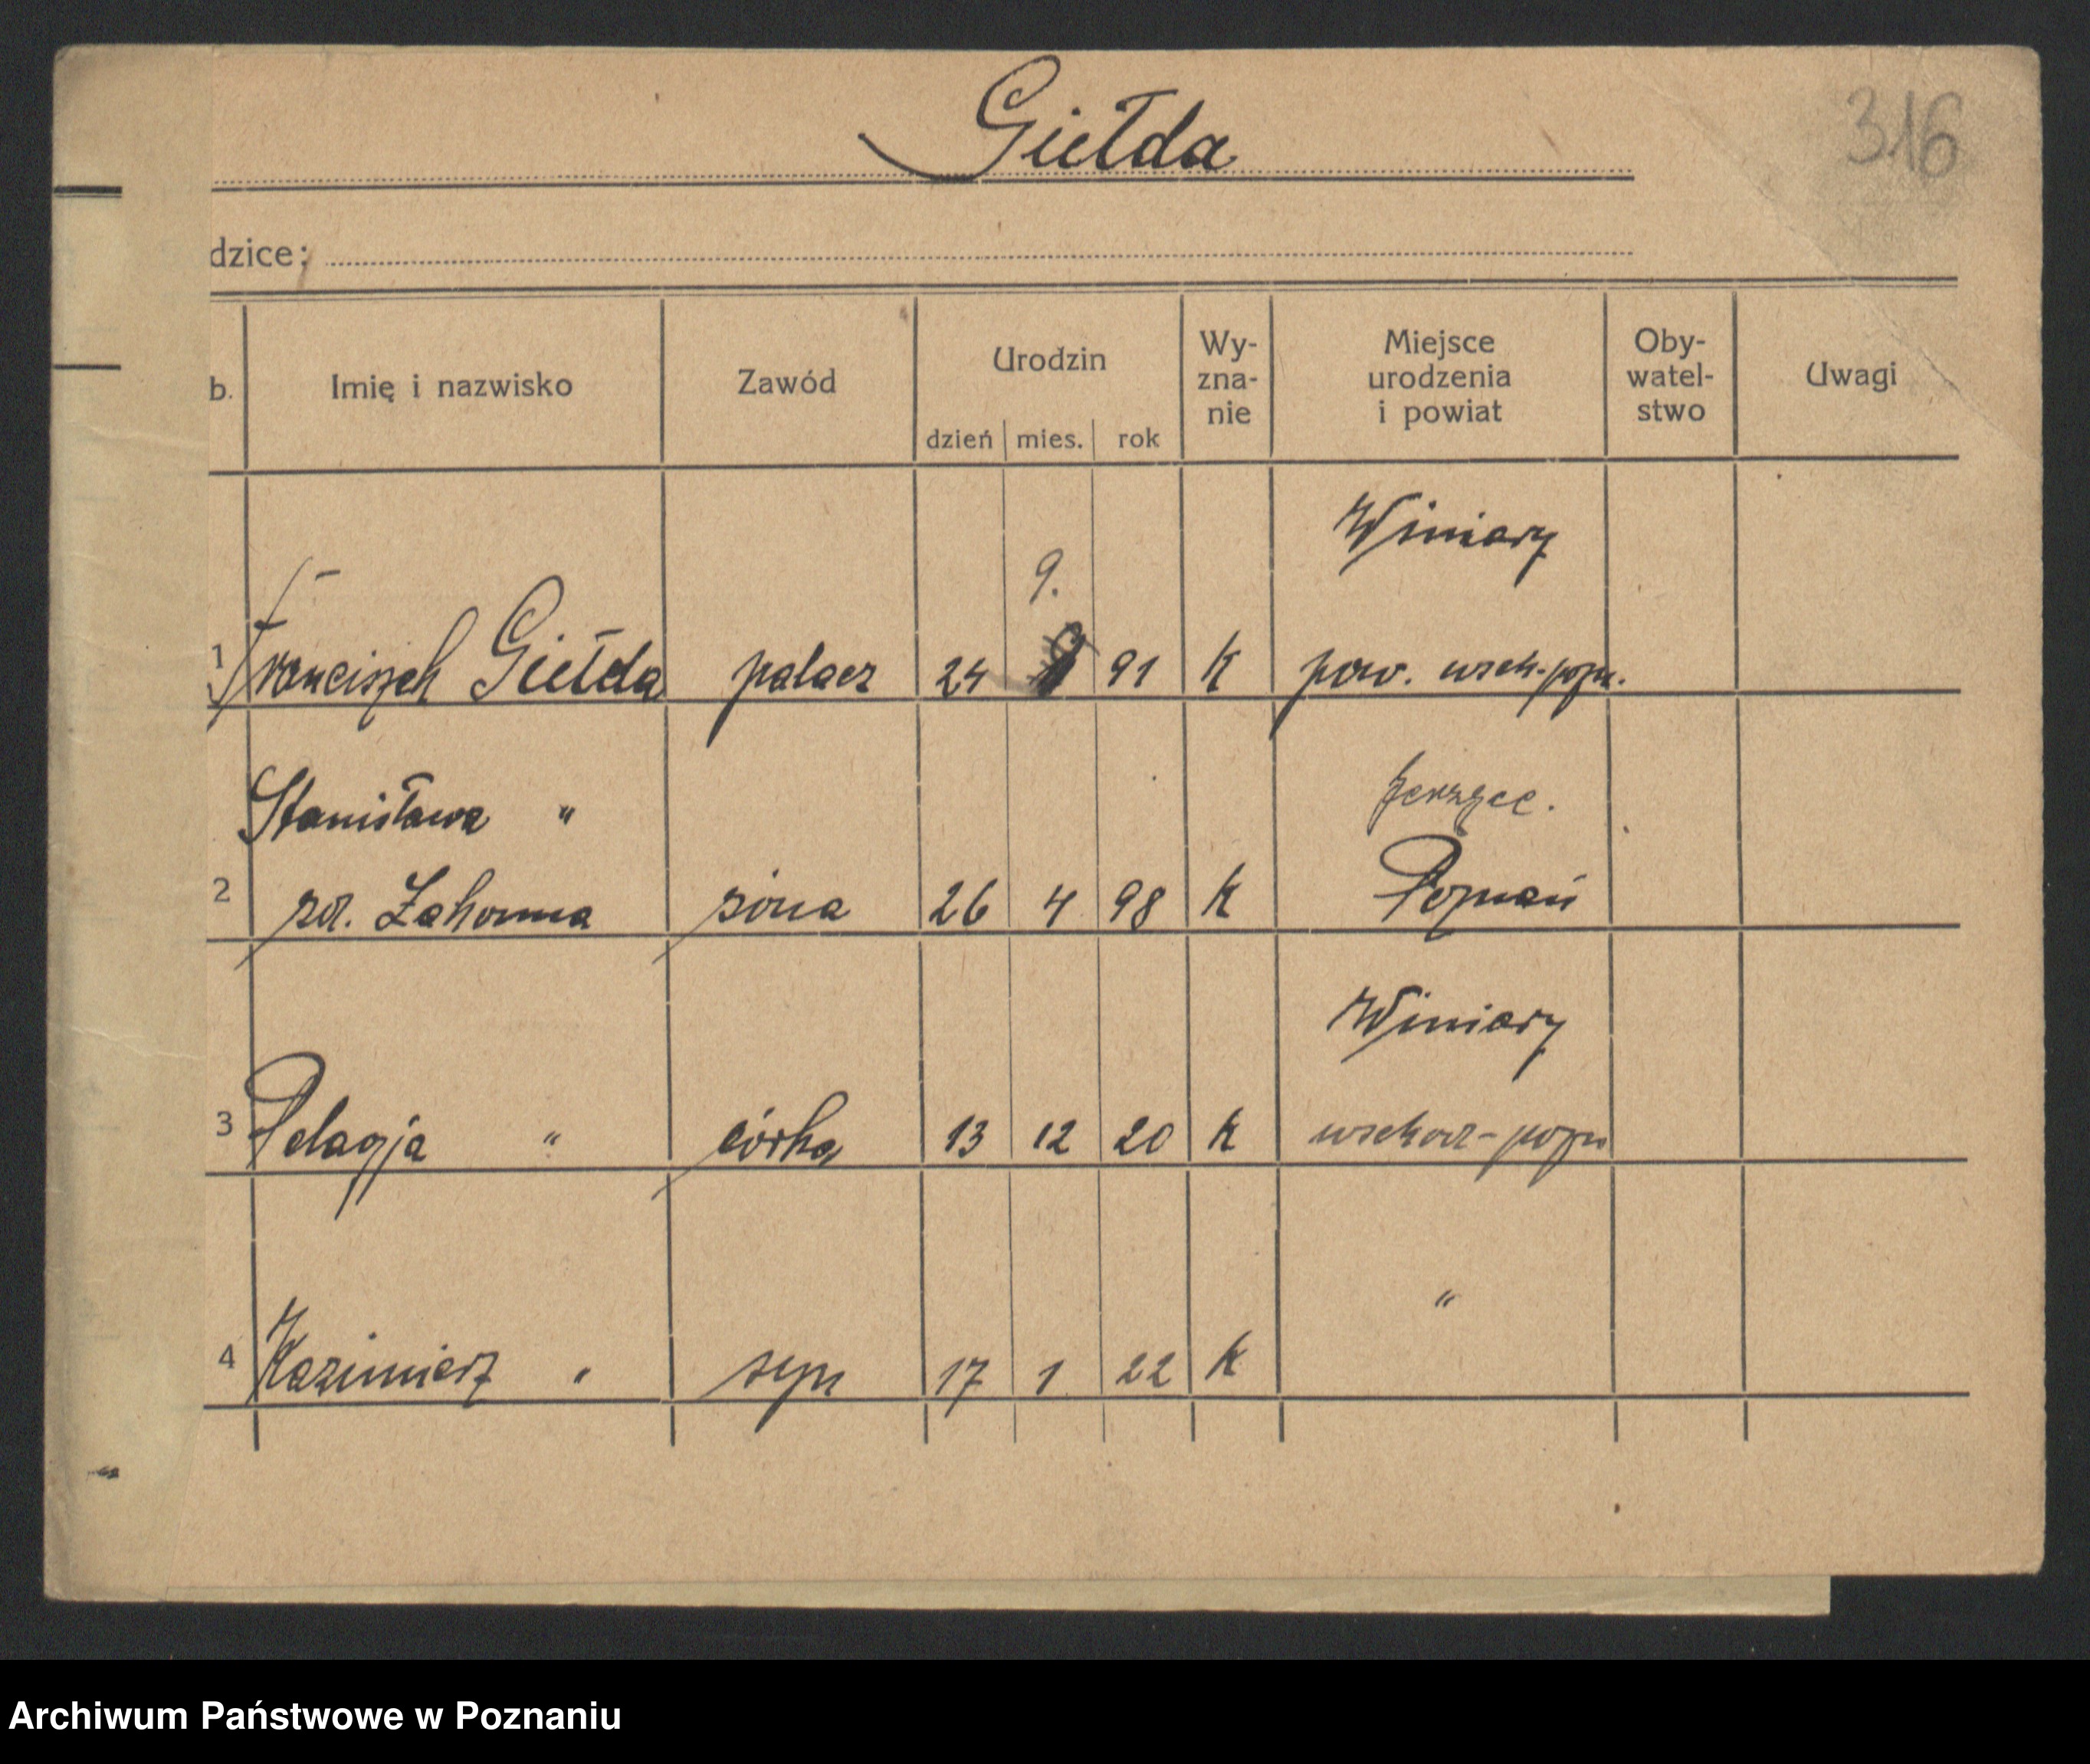 Giełda
316
dzice:
b.
Imię i nazwisko
Zawód
Urodzin
dzień mies. rok
Wy-
zna-
nie
Miejsce
urodzenia
i powiat
Oby-
watel-
stwo
Uwagi
Winiary
9.
1 Franciszek Giełda palacz 24 91 K pow. wsch-pozn.
Stanisława "
2 zd. żona 26 4 98 K Poznań
Winiary
3 Pelagja " córka 13 12 20 K wschod-pozn
"
4 Kazimierz " syn 17 1 22 K
Archiwum Państwowe w Poznaniu